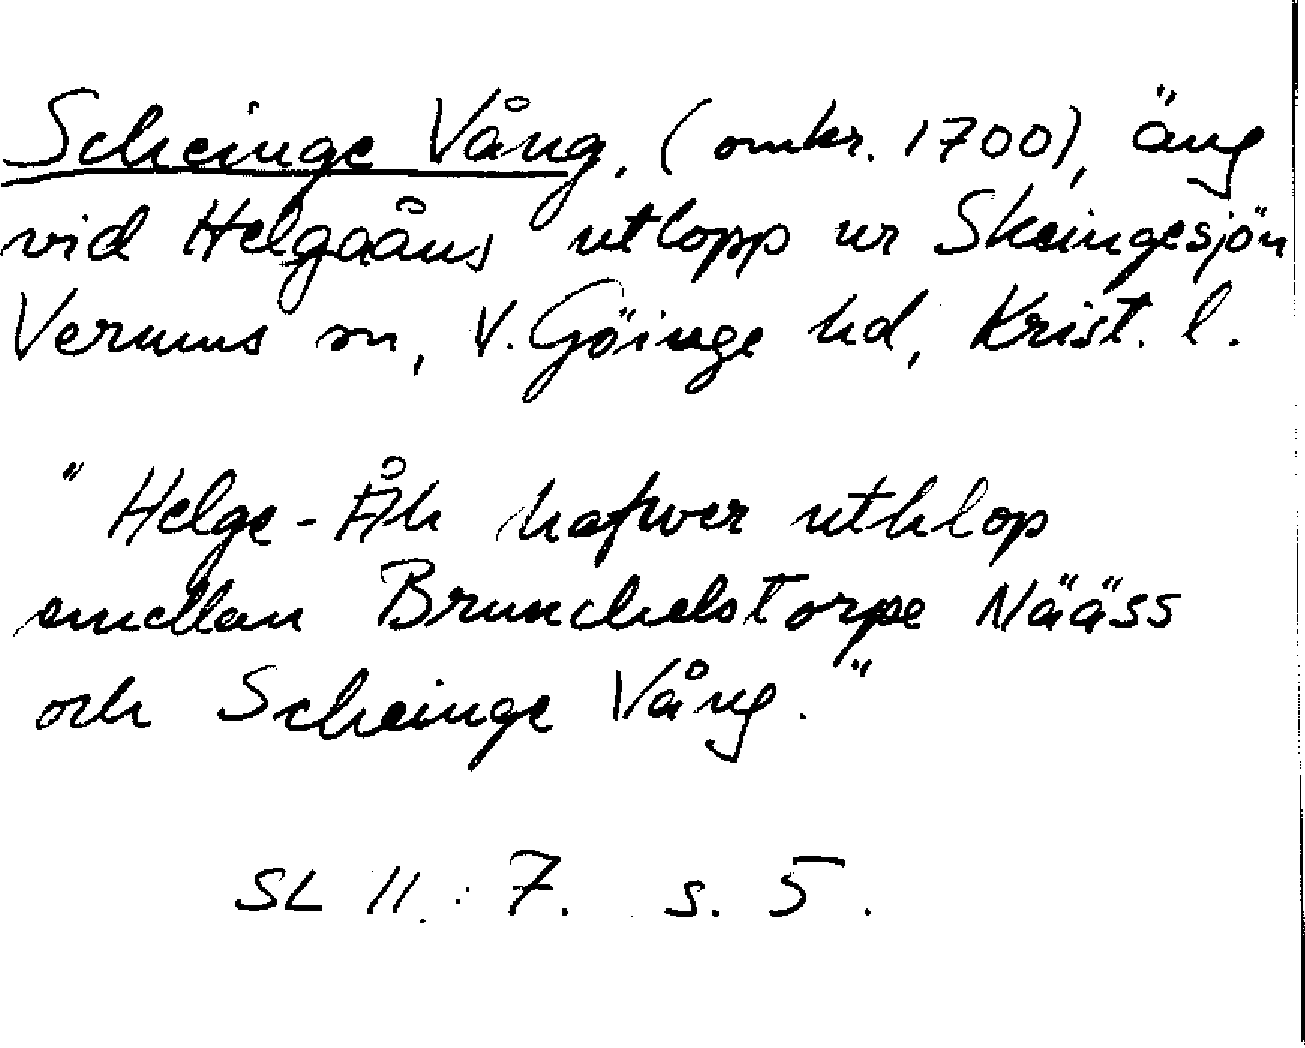 Scheinge Vång. (omkr. 1700), äng
vid Helgaåns utlopp ur Skeingesjön
Verums sn, V. Göinge hd, Krist. l.
" Helge-Åh hafwer uthlop
emellan Brunckelstorpe Nääss
och Scheinge Vång."
SL II: 7. s. 5.